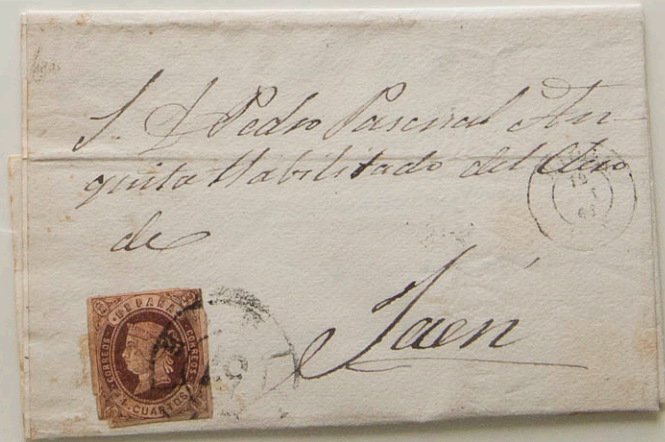 S. D. Pedro Pascual An-
quita Habilitado del Clero
de
Jaén
ESPAÑA
CORREOS
CORREOS
4 CUARTOS